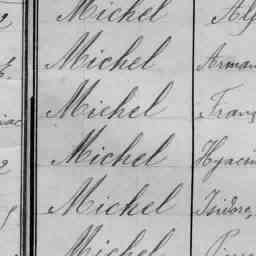 Michel
Michel Arman
Michel Franç
Michel Hyacin
Michel Isidore
Michel